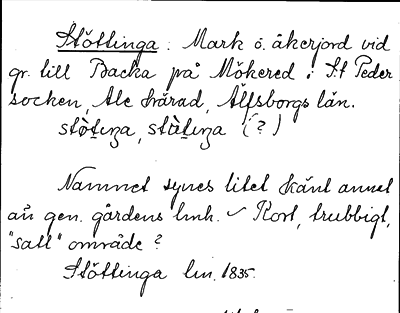 Stöttinga : Mark o. åkerjord vid
gr. till Backa på Mökered i St Peder
socken, Ale härad, Älfsborgs län.
stòt̲eŋa, stàt̲eŋa (?)
Namnet synes litet känt annat
än gen. gårdens
Kort, trubbigt,
"satt" område?
Stöttinga lm. 1835.